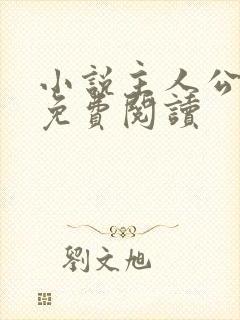 小說主人公
免費閱讀
劉文旭